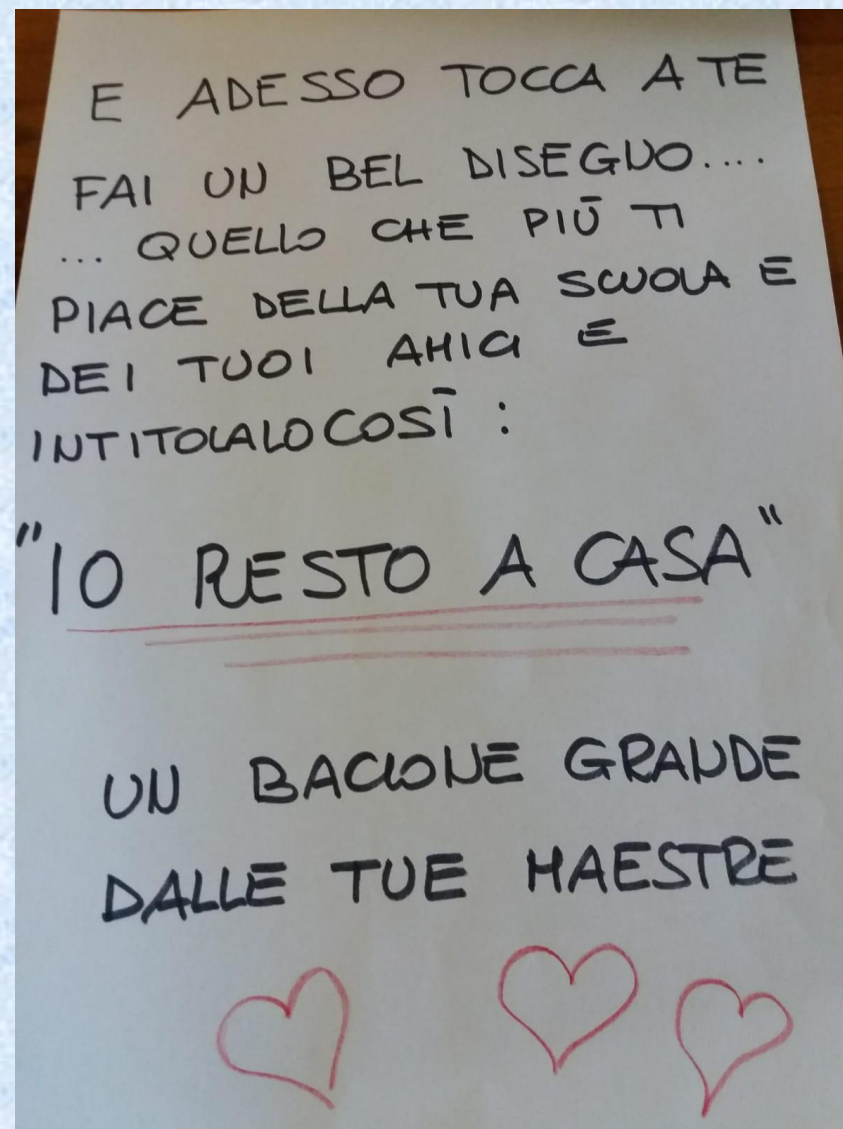 E ADESSO TOCCA A TE
FAI UN BEL DISEGNO....
... QUELLO CHE PIÙ TI
PIACE DELLA TUA SCUOLA E
DEI TUOI AMICI E
INTITOLALO COSÌ :
"IO RESTO A CASA"
UN BACIONE GRANDE
DALLE TUE MAESTRE